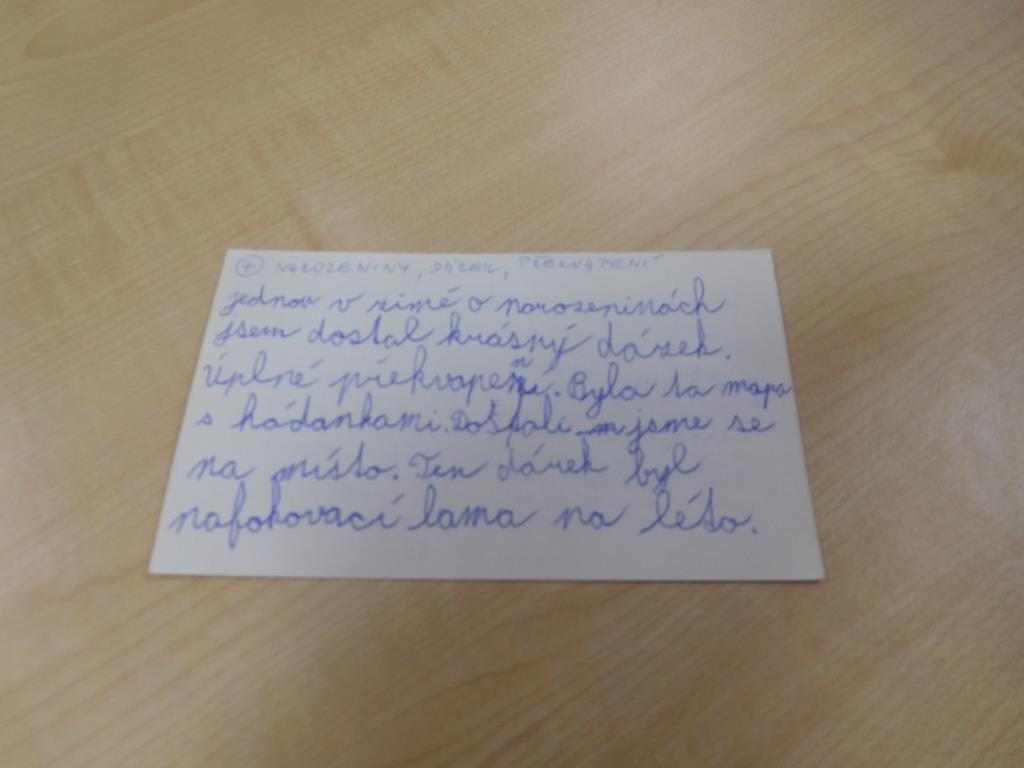 + NAROZENINY, DÁREK, PŘEKVAPENÍ
jednou v zimě o narozeninách
jsem dostal krásný dárek.
Úplné překvapení. Byla to mapa
s hádankami. Dostali jsme se
na místo. Ten dárek byl
nafokovací lama na léto.